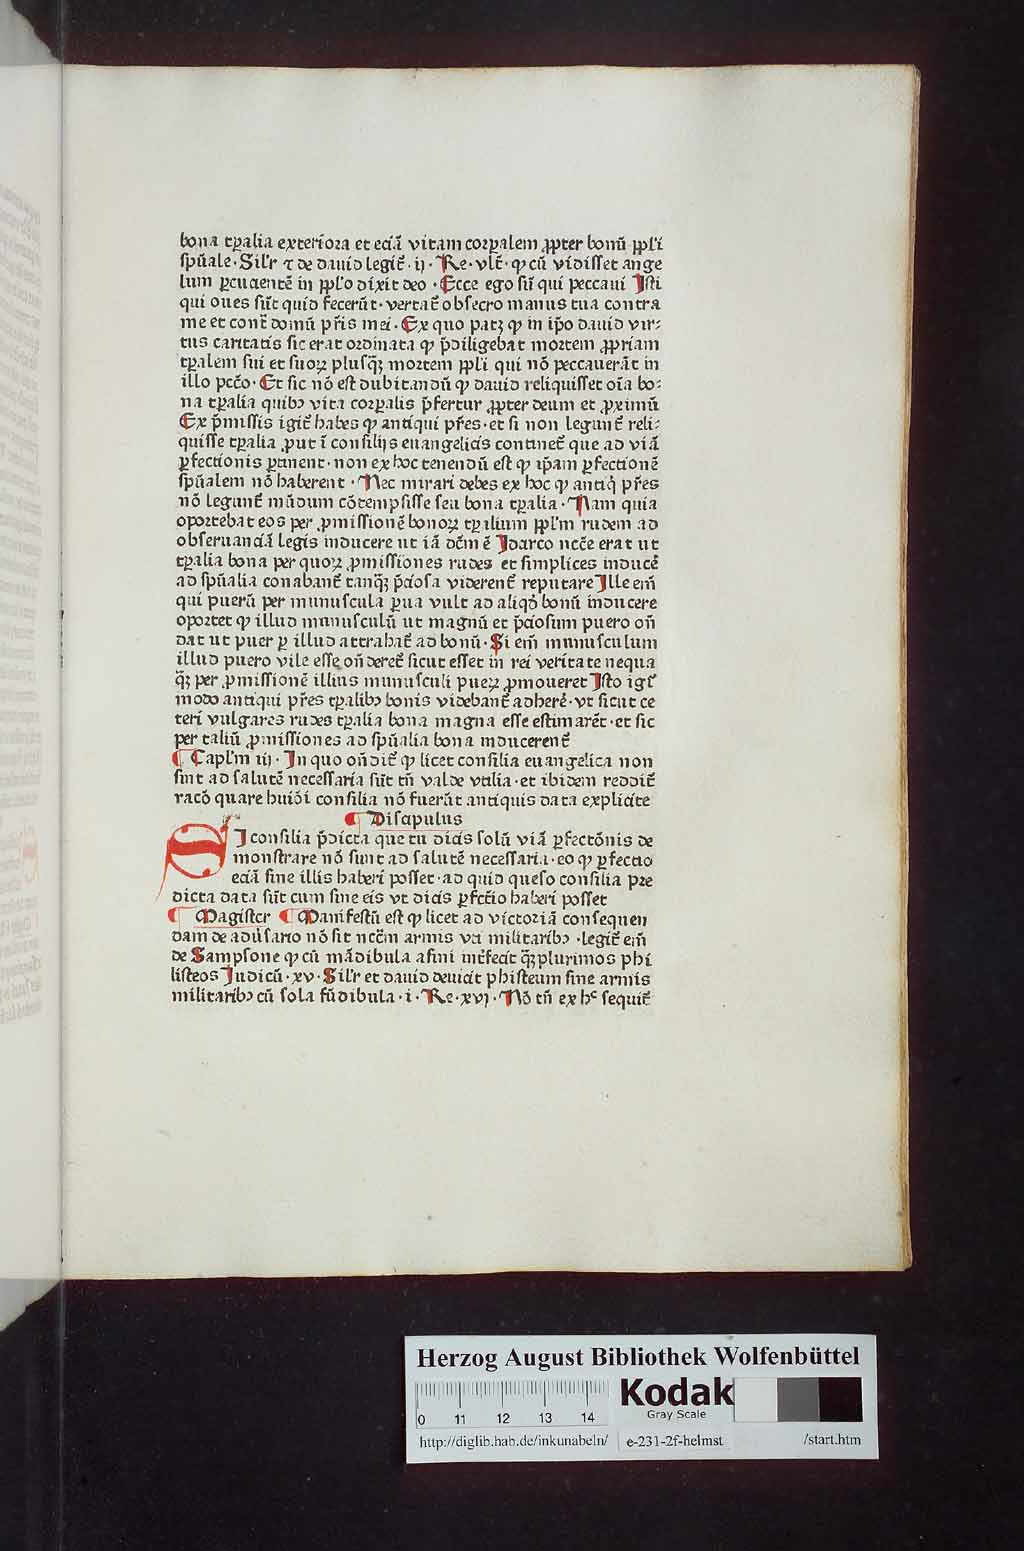 bona tꝑalia exteriora et eciā vitam corꝑalem ꝓpter bonū ppl'i
spūale · Sil'r ⁊ de dauid legit̄ · ij · Re · vlt̄ · ꝙ cū vidisset ange
lum ꝑcucientē in ppl'o dixit deo · Ecce ego sū qui peccaui Isti
qui oues sūt quid fecerūt · vertat̄ obsecro manus tua contra
me et cont̄ domū pr̄is mei · Ex quo patꝫ ꝙ in ip̄o dauid vir-
tus caritatis sic erat ordinata ꝙ p̄diligebat mortem ꝓpriam
tꝑalem sui et suoꝝ plusqꝫ̄ mortem ppl'i qui nō peccauerāt in
illo pctō · Et sic nō est dubitandū ꝙ dauid reliquisset oīa bo-
na tꝑalia quibꝰ vita corꝑalis p̄fertur ꝓpter deum et ꝓximū
Ex p̄missis igit̄ habes ꝙ antiqui pr̄es · et si non legunt̄ reli-
quisse tꝑalia ꝓut ī consilijs euangelicis continet̄ que ad viā
ꝑfectionis ꝑtinent · non ex hoc tenendū est ꝙ ip̄am ꝑfectionē
spūalem nō haberent · Nec mirari debes ex hoc ꝙ antiq̇ pr̄es
nō legunt̄ mūdum cōtempsisse seu bona tꝑalia · Nam quia
oportebat eos per ꝓmissionē bonoꝝ tꝑalium ppl'm rudem ad
obseruanciā legis inducere ut iā dc̄m ē Idarco ncc̄e erat ut
tꝑalia bona per quoꝝ ꝓmissiones rudes et simplices inducē
ad spūalia conabant̄ tanqꝫ̄ p̄ciosa viderent̄ reputare Ille em̄
qui puerū per munuscula ꝑua vult ad aliqḋ bonū inducere
oportet ꝙ illud munusculū ut magnū et p̄ciosum puero on̄
dat ut puer ꝑ illud attrahat̄ ad bonū · Si em̄ munusculum
illud puero vile esse on̄deret̄ sicut esset in rei veritate nequa
qꝫ̄ per ꝓmissionē illius munusculi pueꝝ ꝓmoueret Isto igr̄
modo antiqui pr̄es tꝑalibꝰ bonis videbant̄ adherē · vt sicut ce
teri vulgares rudes tꝑalia bona magna esse estimarēt · et sic
per taliū ꝓmissiones ad spūalia bona inducerent̄
¶ Capl'm iij · In quo on̄dit̄ ꝙ licet consilia euangelica non
sint ad salutē necessaria sūt tn̄ valde vtilia · et ibidem reddit̄
racō quare huiōi consilia nō fuerūt antiquis data explicite
¶ Discipulus
SI consilia p̄dicta que tu dicis solū viā ꝑfectōnis de
monstrare nō sunt ad salutē necessaria · eo ꝙ ꝑfectio
eciā sine illis haberi posset · ad quid queso consilia pre
dicta data sūt cum sine eis vt dicis ꝑfcc̄tio haberi posset
¶ Magister ¶ Manifestū est ꝙ licet ad victoriā consequen
dam de adūsario nō sit nccm̄ armis vti militaribꝰ · legit̄ em̄
de Sampsone ꝙ cū mādibula asini intfecit qꝫ̄plurimos phi
listeos Iudicū · xv · Sil'r et dauid deuicit phisteum sine armis
militaribꝰ cū sola fūdibula · i · Re · xvj · Nō tn̄ ex hᶜ sequit̄
Herzog August Bibliothek Wolfenbüttel
0 11 12 13 14
Kodak
Gray Scale
http://diglib.hab.de/inkunabeln/ e-231-2f-helmst /start.htm